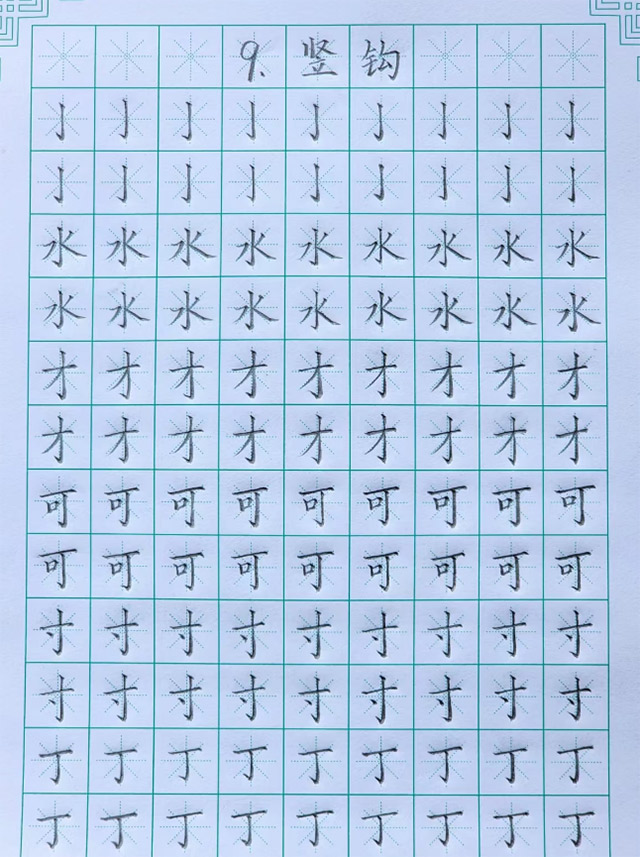 9. 竖钩
亅亅亅亅亅亅亅亅亅
亅亅亅亅亅亅亅亅亅
水水水水水水水水水
水水水水水水水水水
才才才才才才才才才
才才才才才才才才才
可可可可可可可可可
可可可可可可可可可
寸寸寸寸寸寸寸寸寸
寸寸寸寸寸寸寸寸寸
丁丁丁丁丁丁丁丁丁
丁丁丁丁丁丁丁丁丁